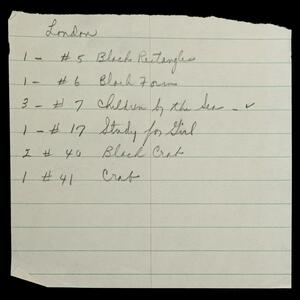 London
1 - #5 Black Rectangles
1 - #6 Black Forms
3 - #7 Children by the Sea - ✓
1 - #17 Study for Girl
2 #40 Black Crab
1 #41 Crab